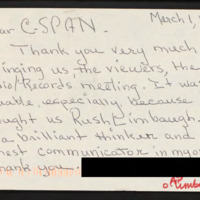 ar C-SPAN. March 1,
Thank you very much
inging us, the viewers, the
io/Records meeting. It wa
uable, especially, because
ought us Rush Limbaugh.
a brilliant thinker and
nest communicator in my o
hank you.